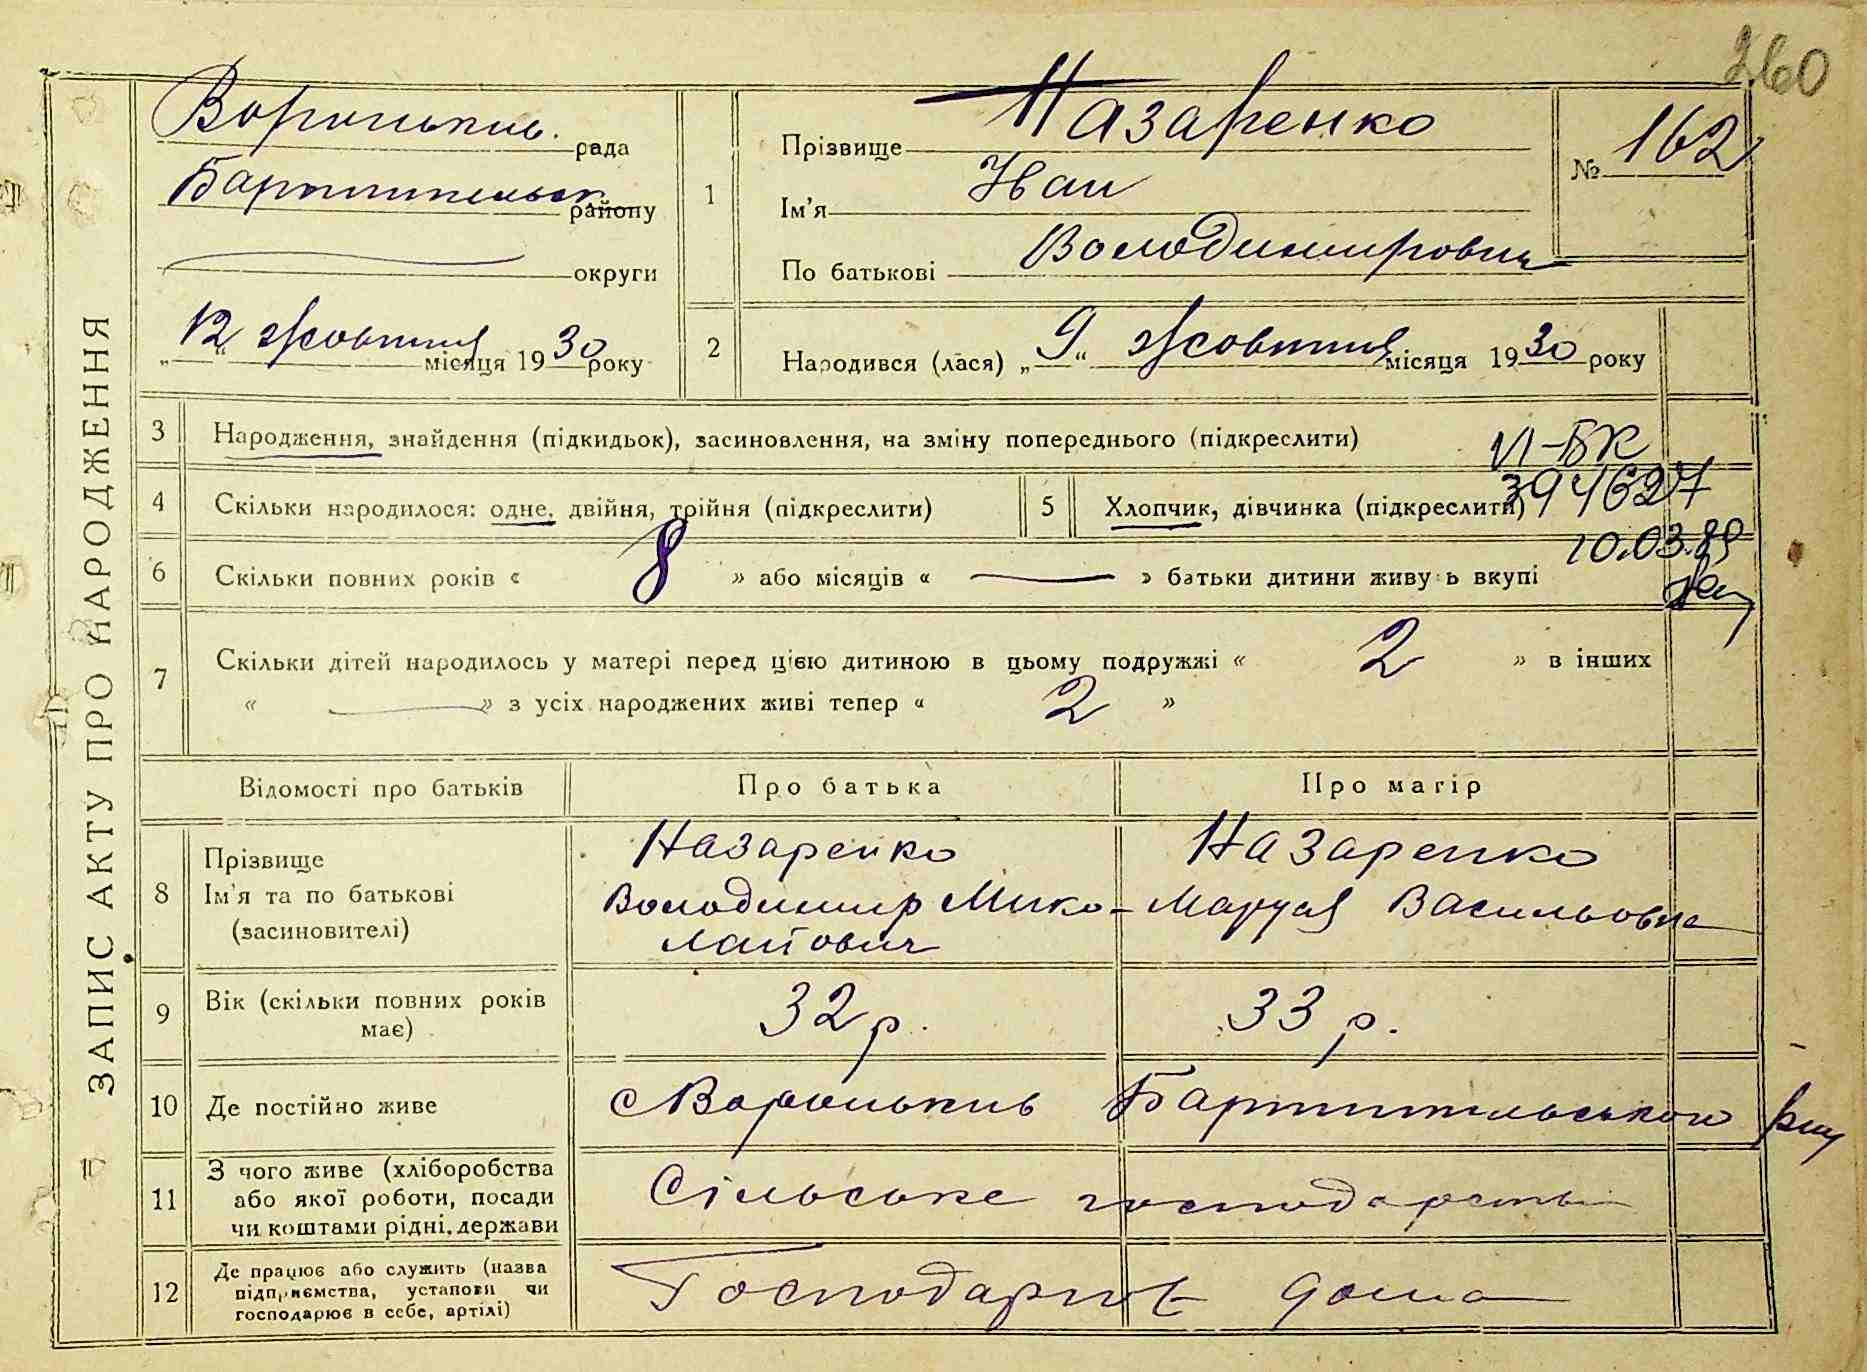 260
ЗАПИС АКТУ ПРО НАРОДЖЕННЯ
Вороньків рада
району
округи
„12“ жовтня місяця 1930 року
1
Прізвище Назаренко
Ім'я Іван
По батькові Володимирович
№ 162
2
Народився (лася) „9“ жовтня місяця 1930 року
3
Народження, знайдення (підкидьок), засиновлення, на зміну попереднього (підкреслити)
VI-БК
394627
10.03.89
4
Скільки народилося: одне, двійня, трійня (підкреслити)
5
Хлопчик, дівчинка (підкреслити)
6
Скільки повних років « 8 » або місяців « — » батьки дитини живуть вкупі
7
Скільки дітей народилось у матері перед цією дитиною в цьому подружжі « 2 » в інших
« — » з усіх народжених живі тепер « 2 »
Відомості про батьків
Про батька
Про матір
8
Прізвище
Ім'я та по батькові
(засиновителі)
Назаренко
Володимир Мико-
лайович
Назаренко
Маруся Васильовна
9
Вік (скільки повних років
має)
32 р.
33 р.
10
Де постійно живе
с Вороньків Баришпільського р-ну
11
З чого живе (хліборобства
або якої роботи, посади
чи коштами рідні, держави
Сільське господарство
12
Де працює або служить (назва
підприємства, установи чи
господарює в себе, артілі)
Господарює дома